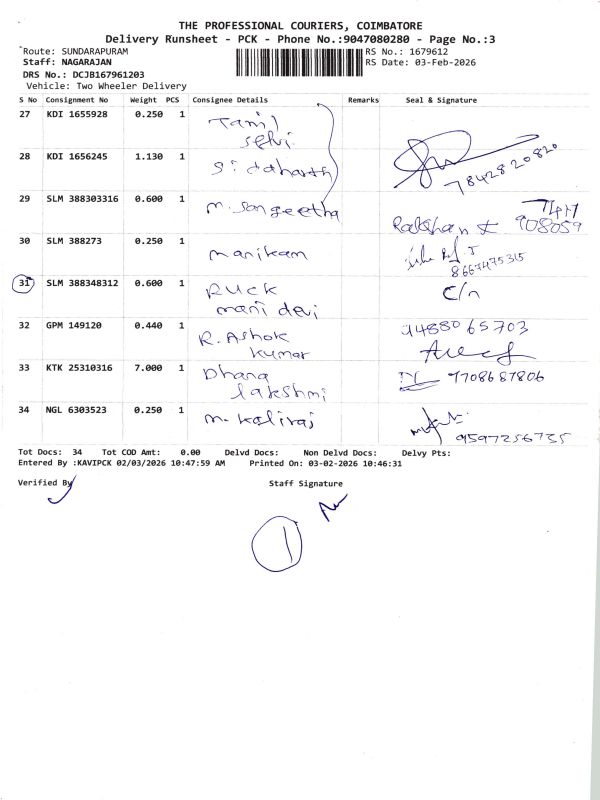 THE PROFESSIONAL COURIERS, COIMBATORE
Delivery Runsheet - PCK - Phone No.:9047080280 - Page No.:3
Route: SUNDARAPURAM
RS No.: 1679612
Staff: NAGARAJAN
RS Date: 03-Feb-2026
DRS No.: DCJB167961203
Vehicle: Two Wheeler Delivery
S No Consignment No Weight PCS Consignee Details Remarks Seal & Signature
27 KDI 1655928 0.250 1 Tamil
Selvi
28 KDI 1656245 1.130 1 Siddharth
7842820820
29 SLM 388303316 0.600 1 M. Sangeetha
908059
30 SLM 388273 0.250 1 manikam
8667475315
31 SLM 388348312 0.600 1 RUCK
mani devi
C/n
32 GPM 149120 0.440 1 R. Ashok
Kumar
9488065703
33 KTK 25310316 7.000 1 Dhana
lakshmi
9708687806
34 NGL 6303523 0.250 1 M. Kaliraj
9597256735
Tot Docs: 34 Tot COD Amt: 0.00 Delvd Docs: Non Delvd Docs: Delvy Pts:
Entered By :KAVIPCK 02/03/2026 10:47:59 AM Printed On: 03-02-2026 10:46:31
Verified By
Staff Signature
1